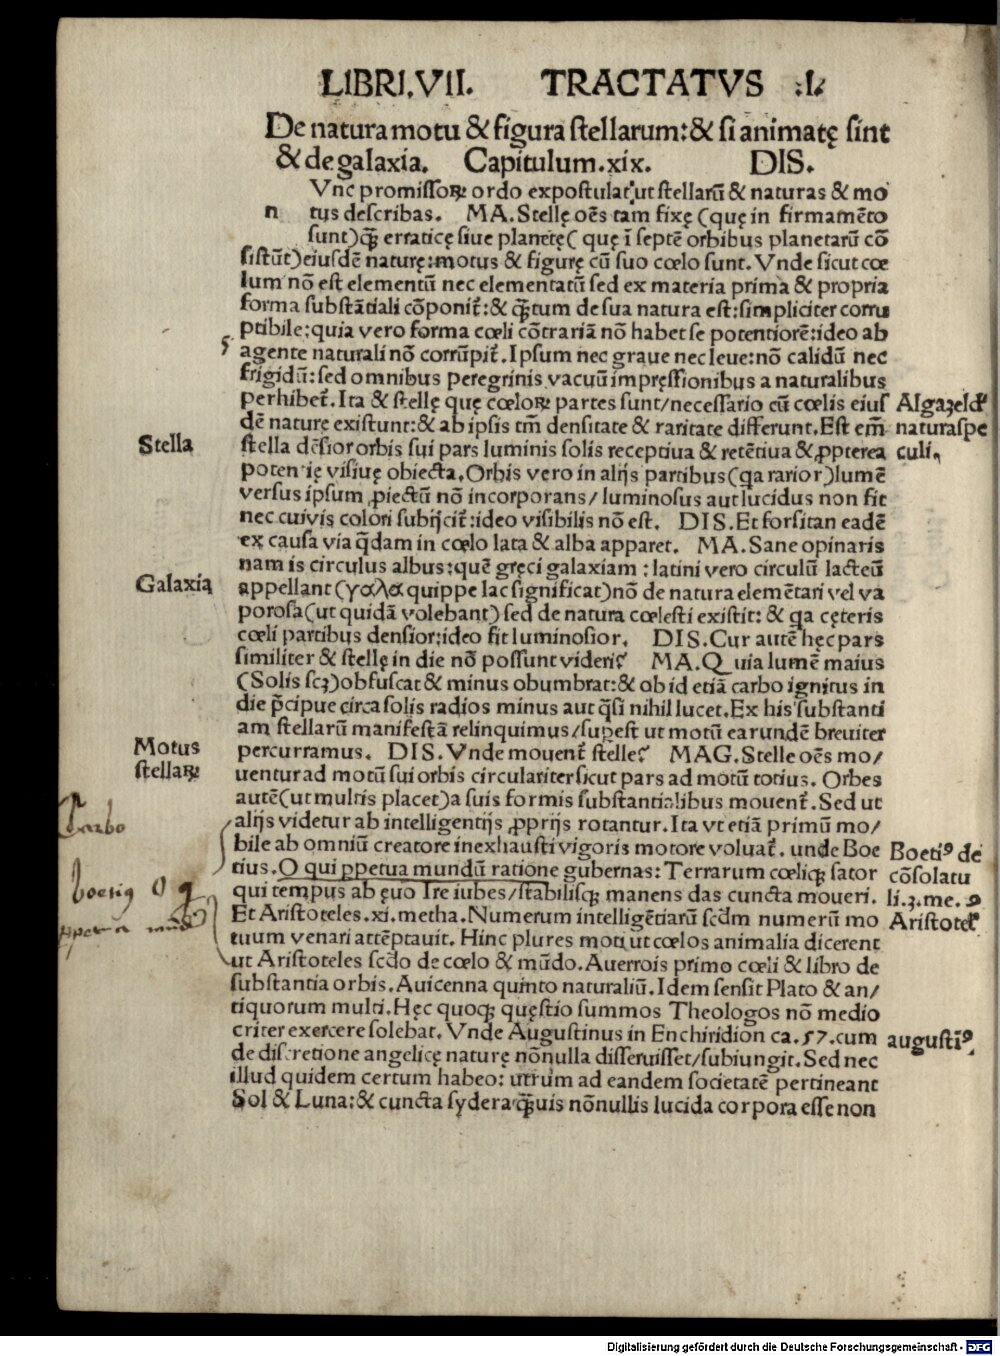 LIBRI.VII. TRACTATVS .I.
De natura motu & figura stellarum: & si animatę sint
& de galaxia. Capitulum.xix. DIS.
Vnc promissoꝝ ordo expostulat: ut stellarū & naturas & mo
n tus describas. MA. Stellę oēs tam fixę (quę in firmamēto
sunt) q̄ʒ erraticę siue planetę ( quę ī septē orbibus planetarū cō
sistūt) eiusdē naturę: motus & figurę cū suo cœlo sunt. Vnde sicut cœ
lum nō est elementū nec elementatū sed ex materia prima & propria
forma substātiali cōponit᷑: & q̄ʒtum de sua natura est: simpliciter corru
ptibile: quia vero forma cœli cōtrariā nō habet se potentiorē: ideo ab
agente naturali nō corrūpit᷑. Ipsum nec graue nec leue: nō calidū nec
frigidū: sed omnibus peregrinis vacuū impręssionibus a naturalibus
perhibet᷑. Ita & stellę quę cœloꝝ partes sunt/ necessario cū cœlis eius
Algazel ď
dē naturę existunt: & ab ipsis tm̄ densitate & raritate differunt. Est em̄
natura spe
Stella
stella dēsior orbis sui pars luminis solis receptiua & retētiua & ꝓpterea
culi.
potentię visiuę obiecta. Orbis vero in alijs partibus (qa rarior) lumē
versus ipsum ꝓiectū nō incorporans/ luminosus aut lucidus non fit
nec cuivis colori subijcit᷑: ideo visibilis nō est. DIS. Et forsitan eadē
ex causa via q̄dam in cœlo lata & alba apparet. MA. Sane opinaris
nam is circulus albus: quē gręci galaxiam : latini vero circulū lacteū
Galaxia
appellant (γαλα quippe lac significat) nō de natura elemētari vel va
porosa (ut quidā volebant) sed de natura cœlesti existit: & qa cęteris
cœli partibus densior: ideo fit luminosior. DIS. Cur autē hęc pars
similiter & stellę in die nō possunt videri? MA. Quia lumē maius
(Solis scʒ) obfuscat & minus obumbrat: & ob id etiā carbo ignitus in
die p̄cipue circa solis radios minus aut q̄si nihil lucet. Ex his substanti
am stellarū manifestā relinquimus/ sup̱est ut motū earundē breuiter
Motus
stellaꝝ
percurramus. DIS. Vnde mouent᷑ stelle? MAG. Stelle oēs mo/
uentur ad motū sui orbis circulariter sicut pars ad motū totius. Orbes
autē (ut multis placet) a suis formis substantialibus mouent᷑. Sed ut
Carbo
alijs videtur ab intelligentijs ꝓprijs rotantur. Ita vt etiā primū mo/
bile ab omniū creatore inexhausti vigoris motore voluat᷑. unde Boe
Boetiꝰ de
tius. O qui ꝑpetua mundū ratione gubernas: Terrarum cœliqʒ sator
cōsolatu
Boetiꝰ O q
qui tempus ab ęuo Ire iubes/ stabilisqʒ manens das cuncta moueri.
li.3.me.9
ꝑpetua mūdū
Et Aristoteles.xi.metha. Numerum intelligētiarū scđm numerū mo
Aristotel᷑
tuum venari attēptauit. Hinc plures moti ut cœlos animalia dicerent
ut Aristoteles scđo de cœlo & mūdo. Auerrois primo cœli & libro de
substantia orbis. Auicenna quinto naturaliū. Idem sensit Plato & an/
tiquorum multi. Hęc quoqʒ quęstio summos Theologos nō medio
criter exercere solebat. Vnde Augustinus in Enchiridion ca.57. cum
augustīꝰ
de discretione angelicę naturę nōnulla disseruisset/ subiungit. Sed nec
illud quidem certum habeo: utrum ad eandem societatē pertineant
Sol & Luna: & cuncta sydera: q̄ʒuis nōnullis lucida corpora esse non
Digitalisierung gefördert durch die Deutsche Forschungsgemeinschaft - DFG